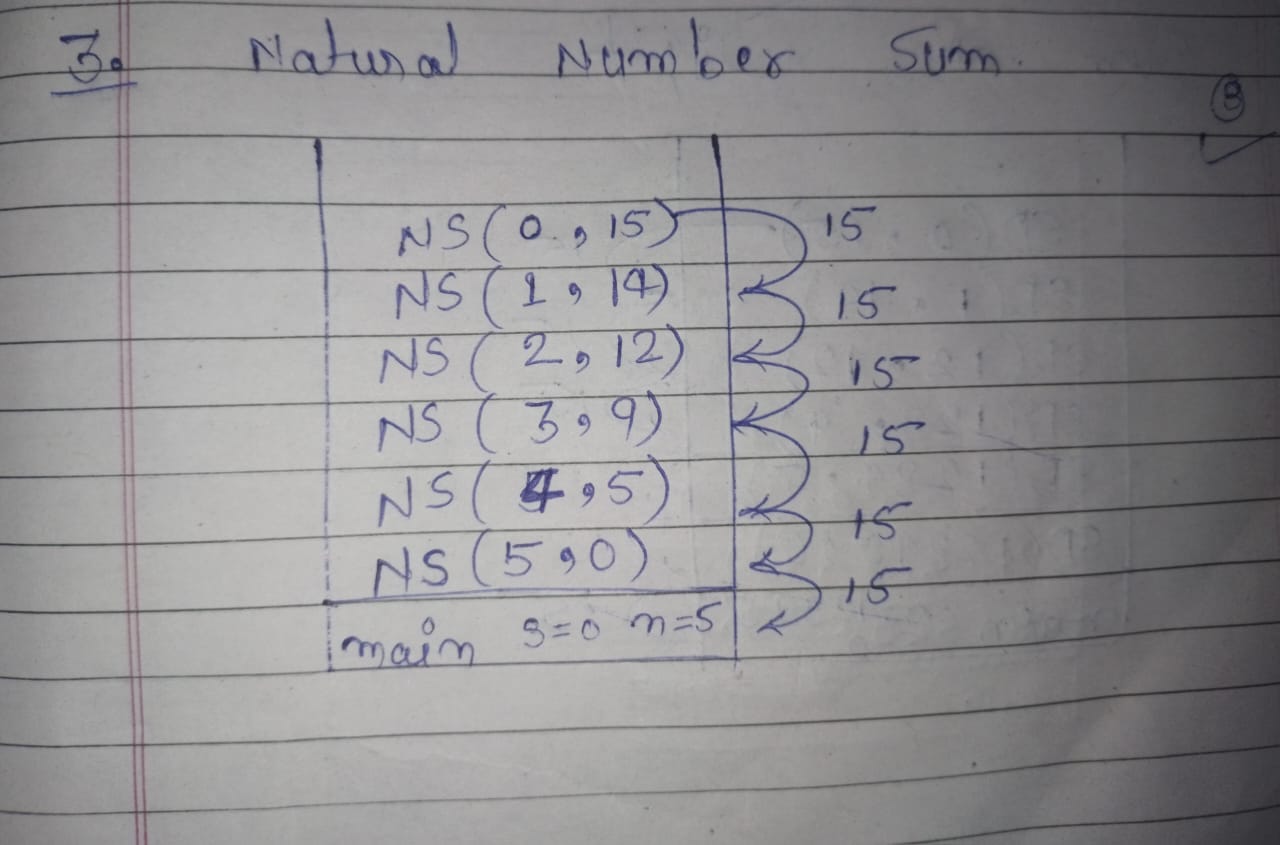 3. Natural Number Sum.
3
NS(0,15) 15
NS(1,14) 15
NS(2,12) 15
NS(3,9) 15
NS(4,5) 15
NS(5,0) 15
main s=0 n=5